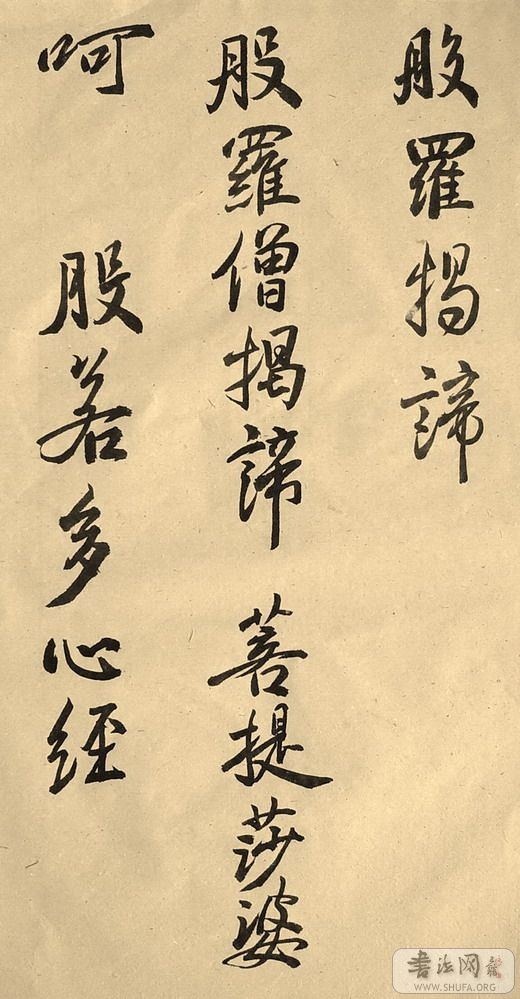 般羅揭諦
般羅僧揭諦 菩提莎婆
呵 般若多心經
書法网
WWW.SHUFA.ORG